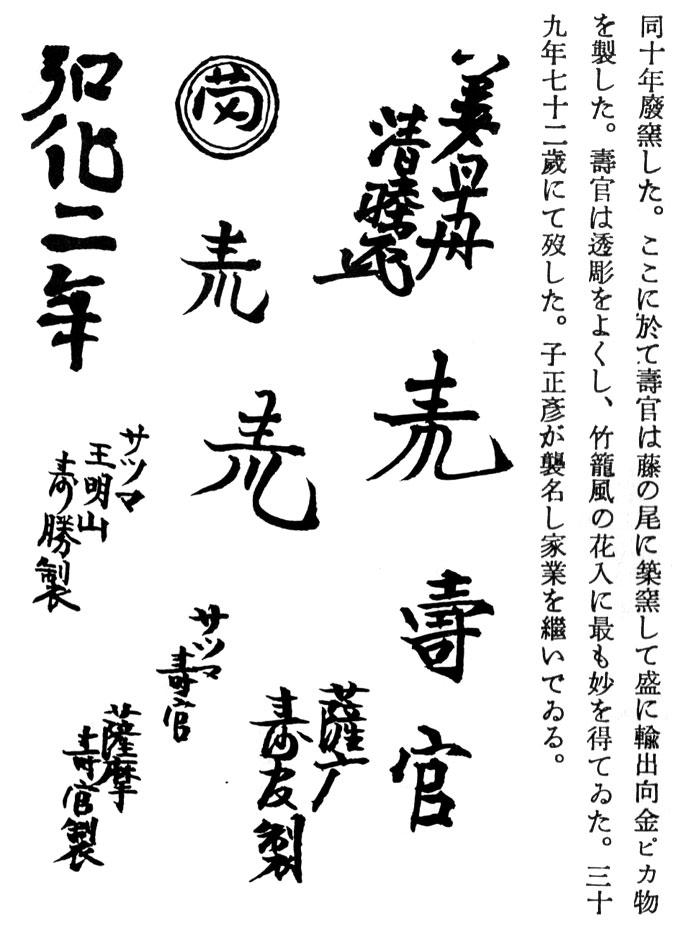 同十年廢窯した。ここに於て壽官は藤の尾に築窯して盛に輸出向金ピカ物
を製した。壽官は透彫をよくし、竹籠風の花入に最も妙を得てゐた。三十
九年七十二歲にて歿した。子正彥が襲名し家業を繼いでゐる。
壽官
薩广
寿友製
サツマ
壽官
薩摩
壽官製
弘化二年
サツマ
王明山
寿勝製